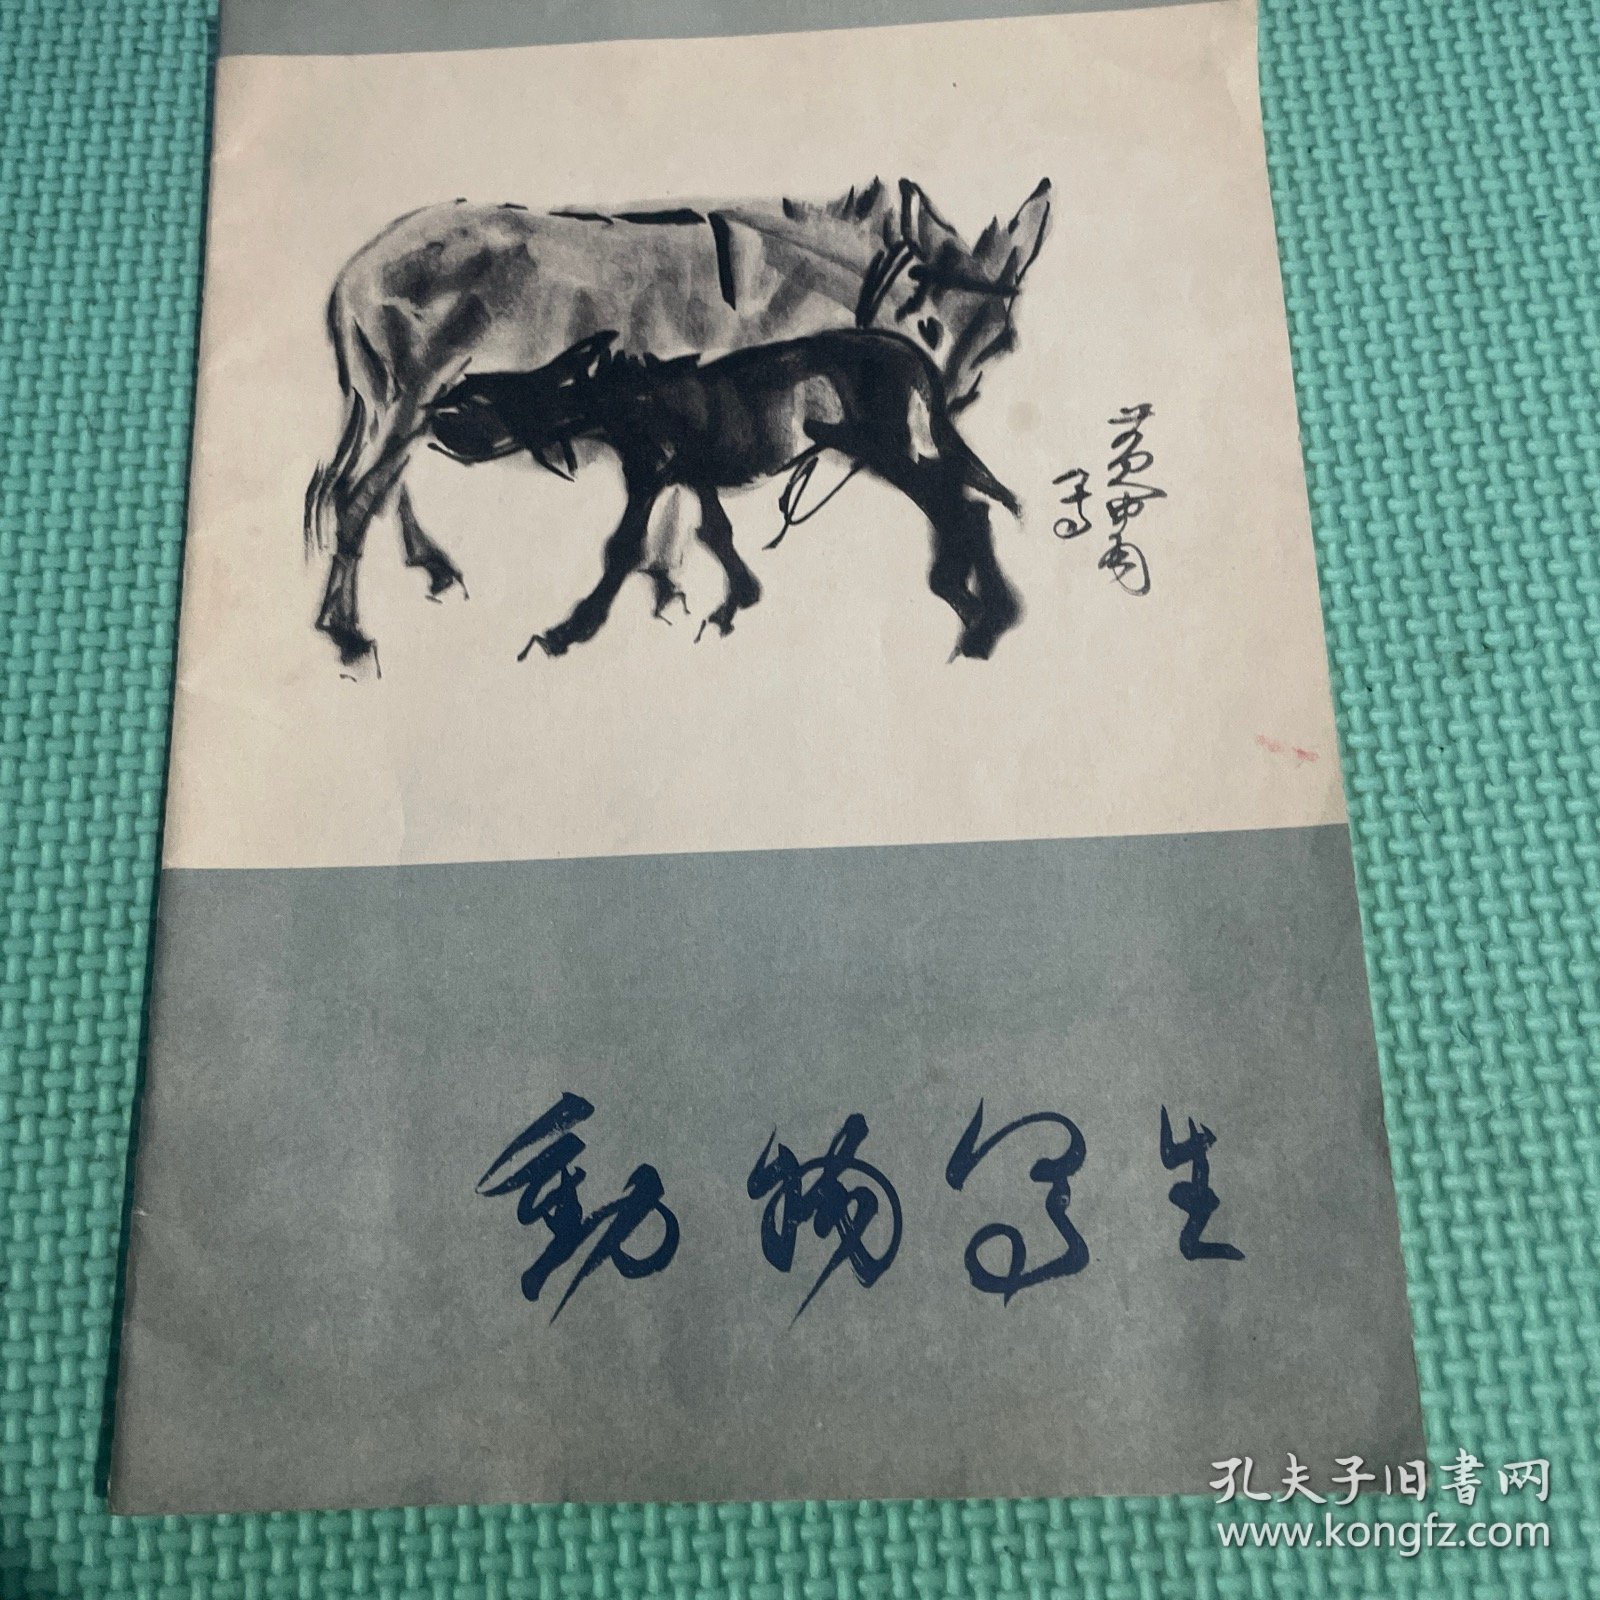 黄冑写
動物写生
孔夫子旧書网
www.kongfz.com